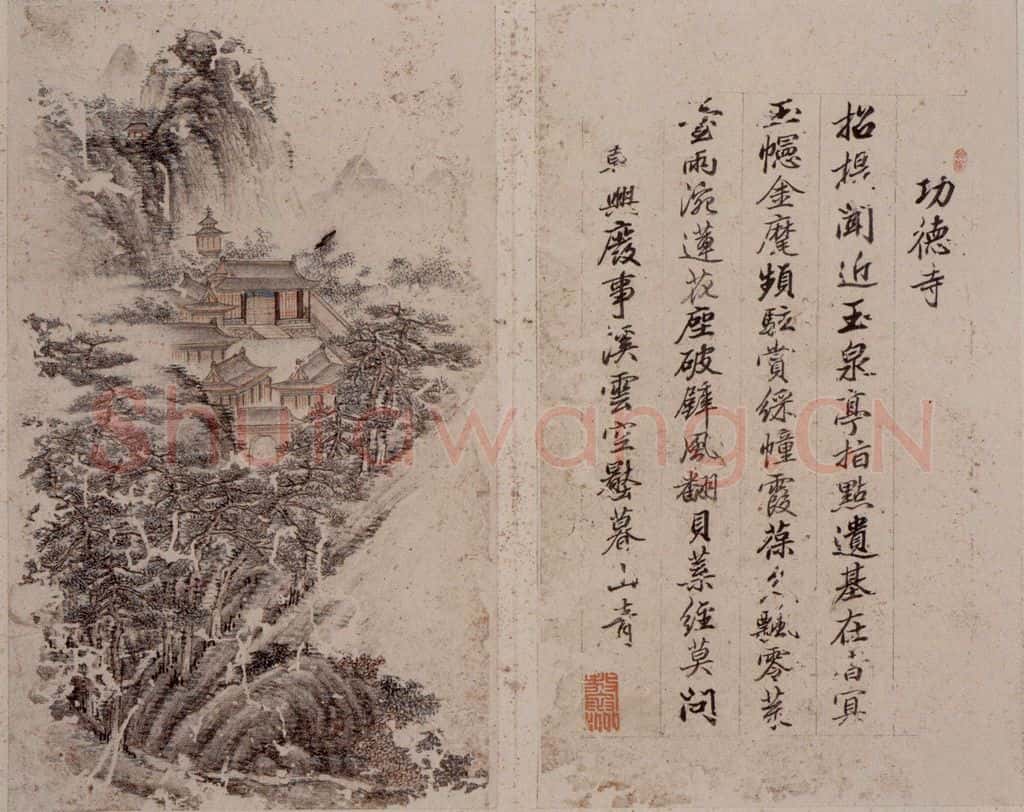 功德寺
招提聞近玉泉亭指點遺基在杳冥
玉幰金麾頻駐賞綵幢霞葆久飄零荒
龕雨涴蓮花座破壁風翻貝葉經莫問
興廢事溪雲空暮山青
Shufawang.CN